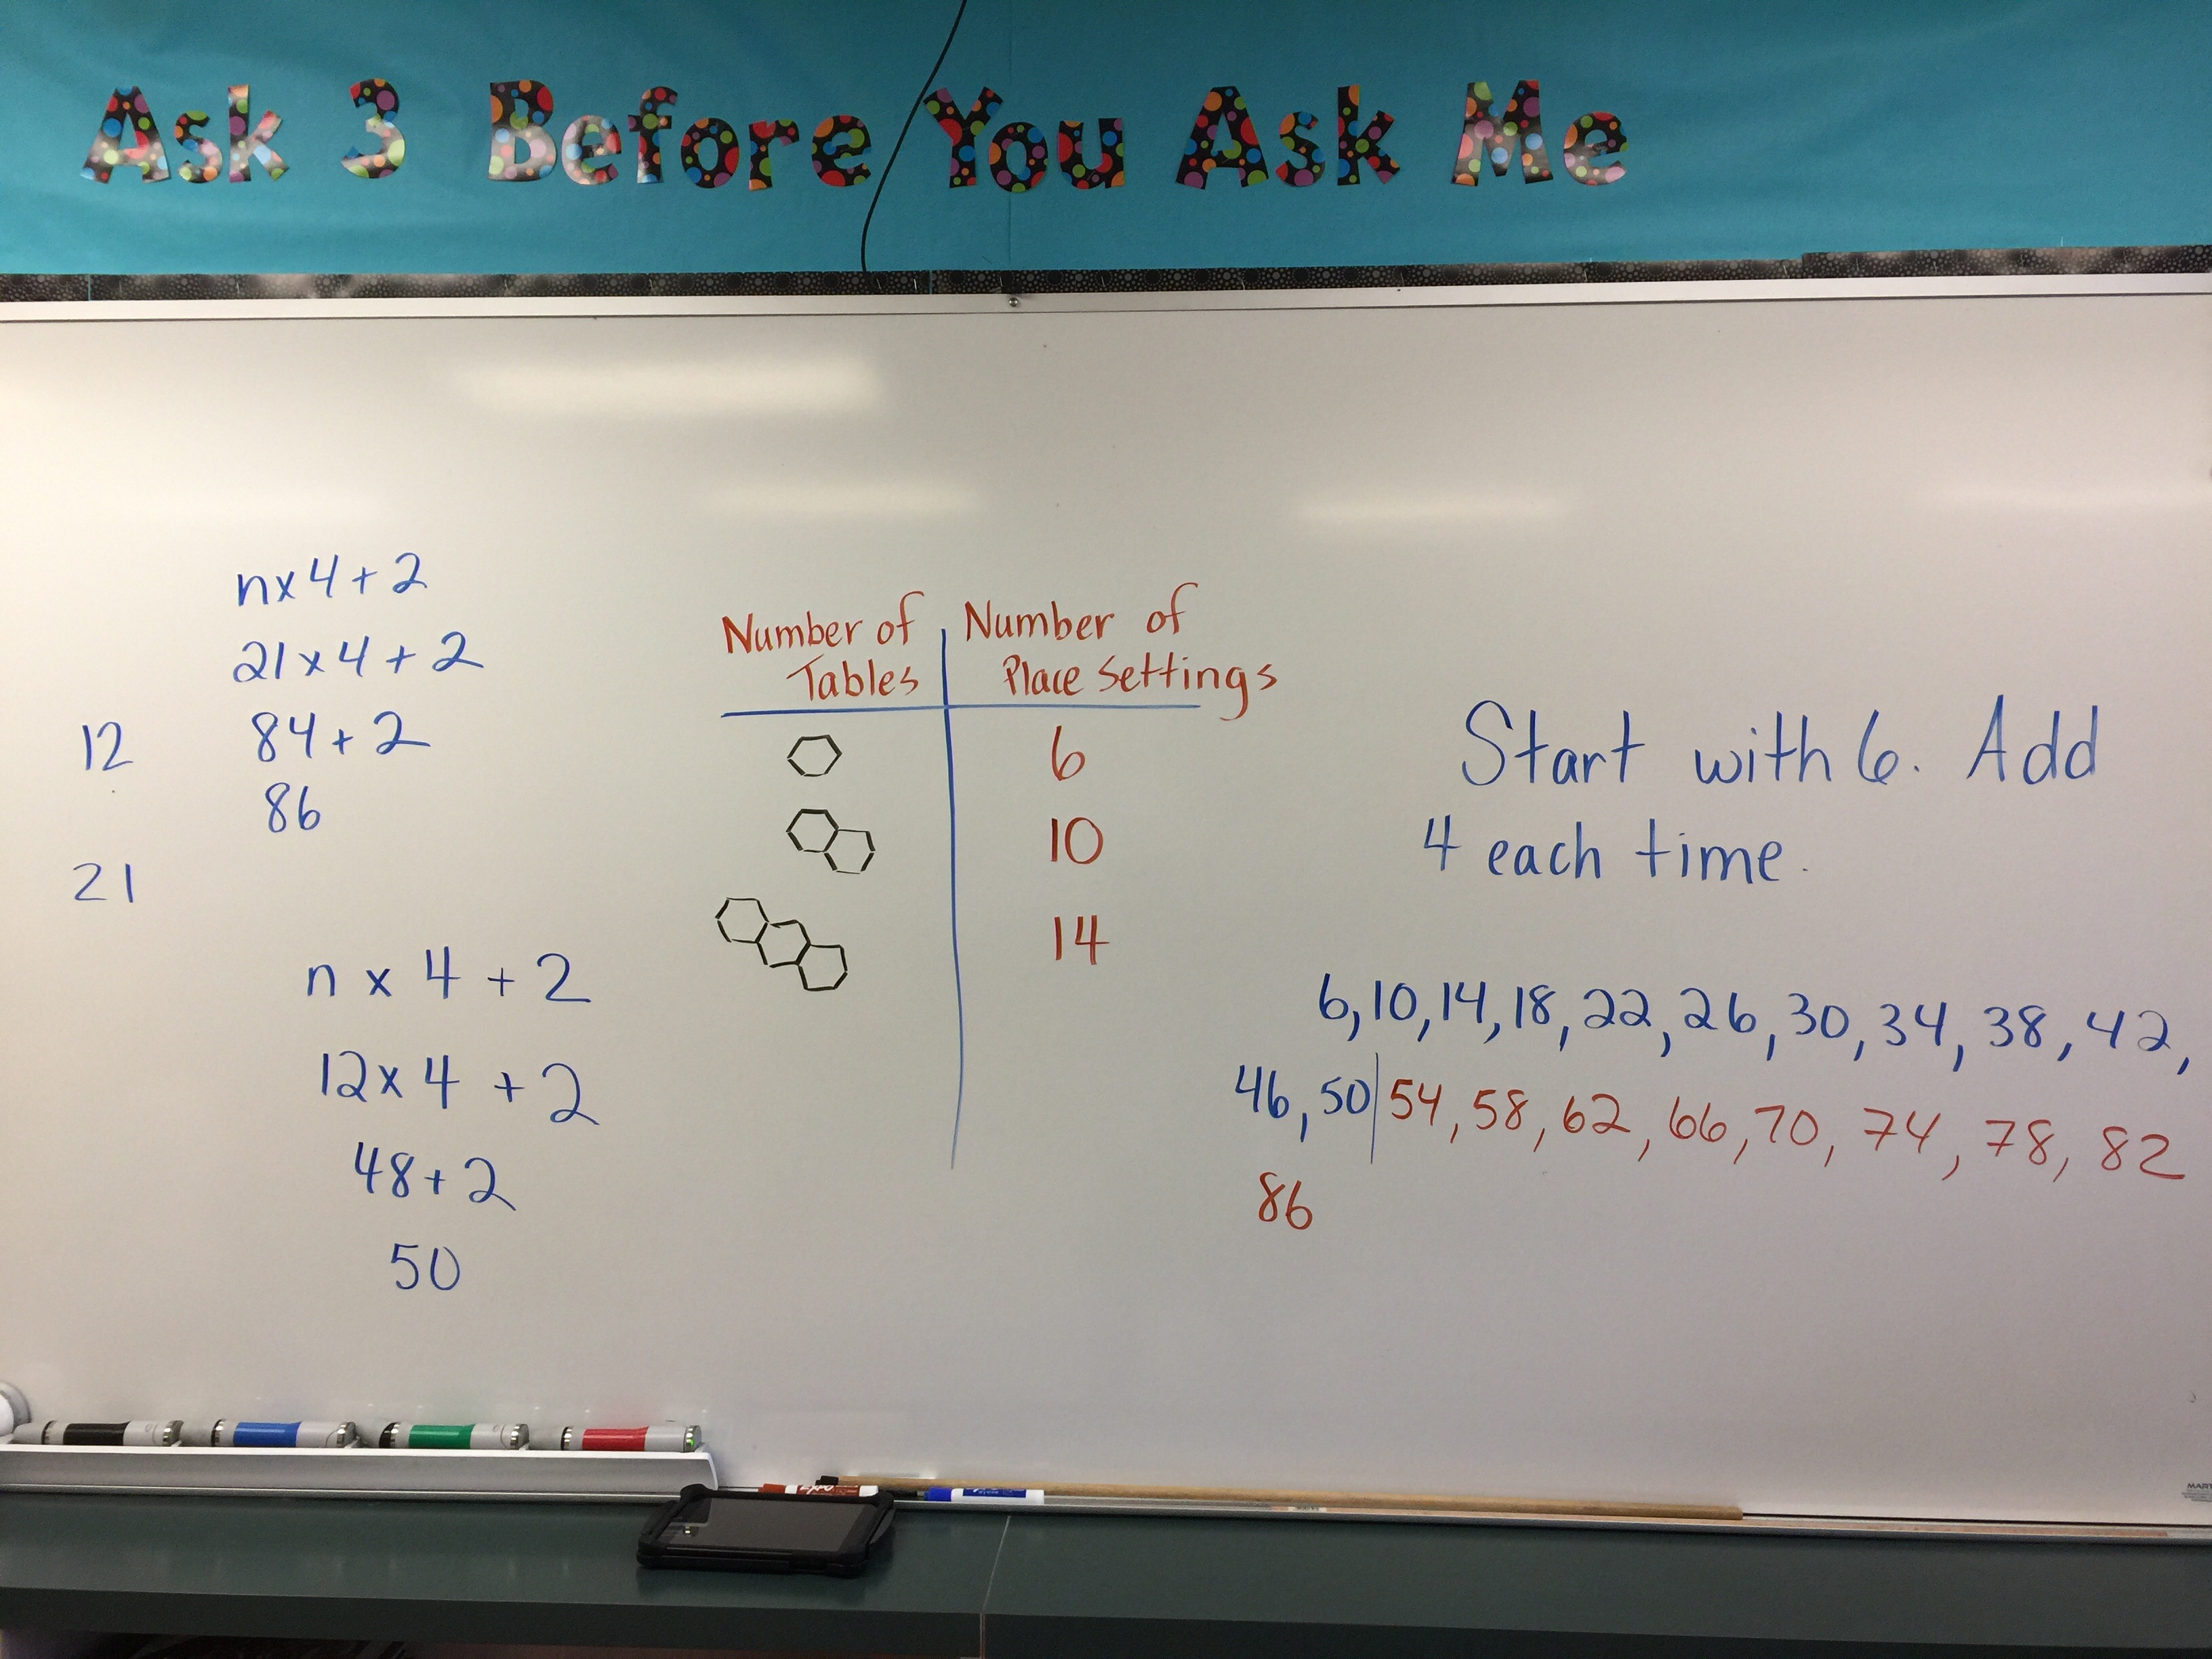 Ask 3 Before You Ask Me
n x 4 + 2
21 x 4 + 2
84 + 2
86
12
21
n x 4 + 2
12 x 4 + 2
48 + 2
50
Number of
Tables
Number of
Place Settings
6
10
14
Start with 6. Add
4 each time.
6, 10, 14, 18, 22, 26, 30, 34, 38, 42,
46, 50 | 54, 58, 62, 66, 70, 74, 78, 82
86